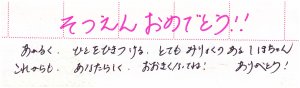 そつえんおめでとう!!
あかるく、ひとをひきつける、とてもみりょくあるしほちゃん
これからも、あなたらしく、おおきくなってね! ありがとう!